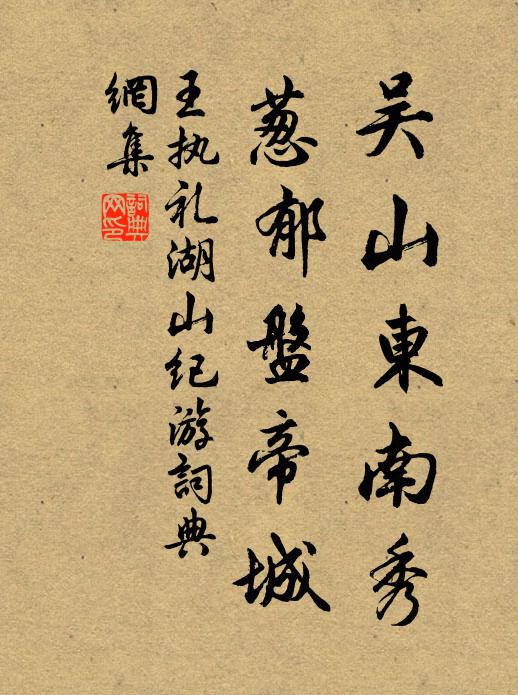 吴山東南秀
葱郁盤帝城
王执礼湖山纪游詞典
網集
詞典網印